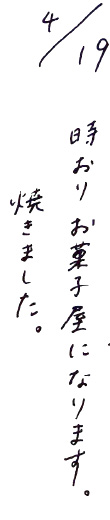 4/19
時おりお菓子屋になります。
焼きました。